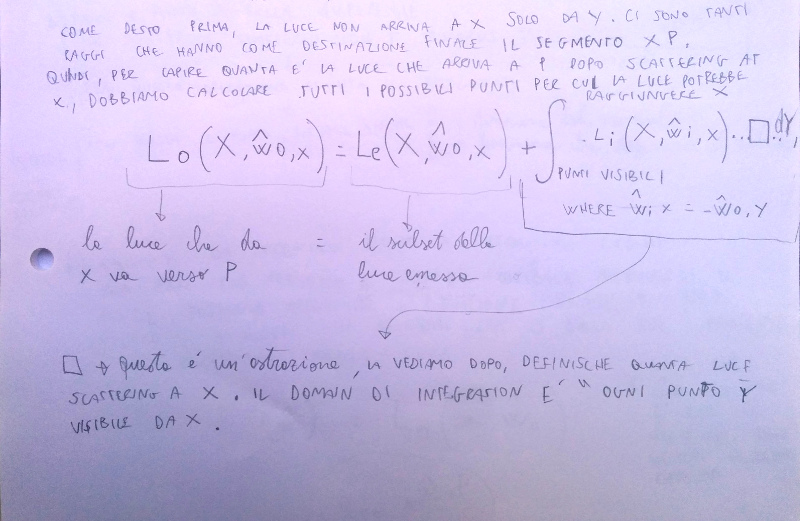 COME DESTO PRIMA, LA LUCE NON ARRIVA A X SOLO DA Y. CI SONO TANTI
RAGGI CHE HANNO COME DESTINAZIONE FINALE IL SEGMENTO XP.
QUNDI, PER CAPIRE QUANTA E' LA LUCE CHE ARRIVA A P DOPO SCATTERING AT
X, DOBBIAMO CALCOLARE TUTTI I POSSIBILI PUNTI PER CUI LA LUCE POTREBBE
RAGGIUNGERE X
Lo(X, ŵo,x) = Le(X, ŵo,x) + ∫ . Li(X, ŵi,x)...□.. dY,
PUNTI VISIBILI
WHERE ŵi x = -ŵo,Y
la luce che da = il subset della
x va verso P luce emessa
□ → questa é un'astrazione, LA VEDIAMO DOPO, DEFINISCHE QUNTA LUCE
SCATTERING A X. IL DOMAIN DI INTEGRATION E' " OGNI PUNTO Y
VISIBILE DA X.